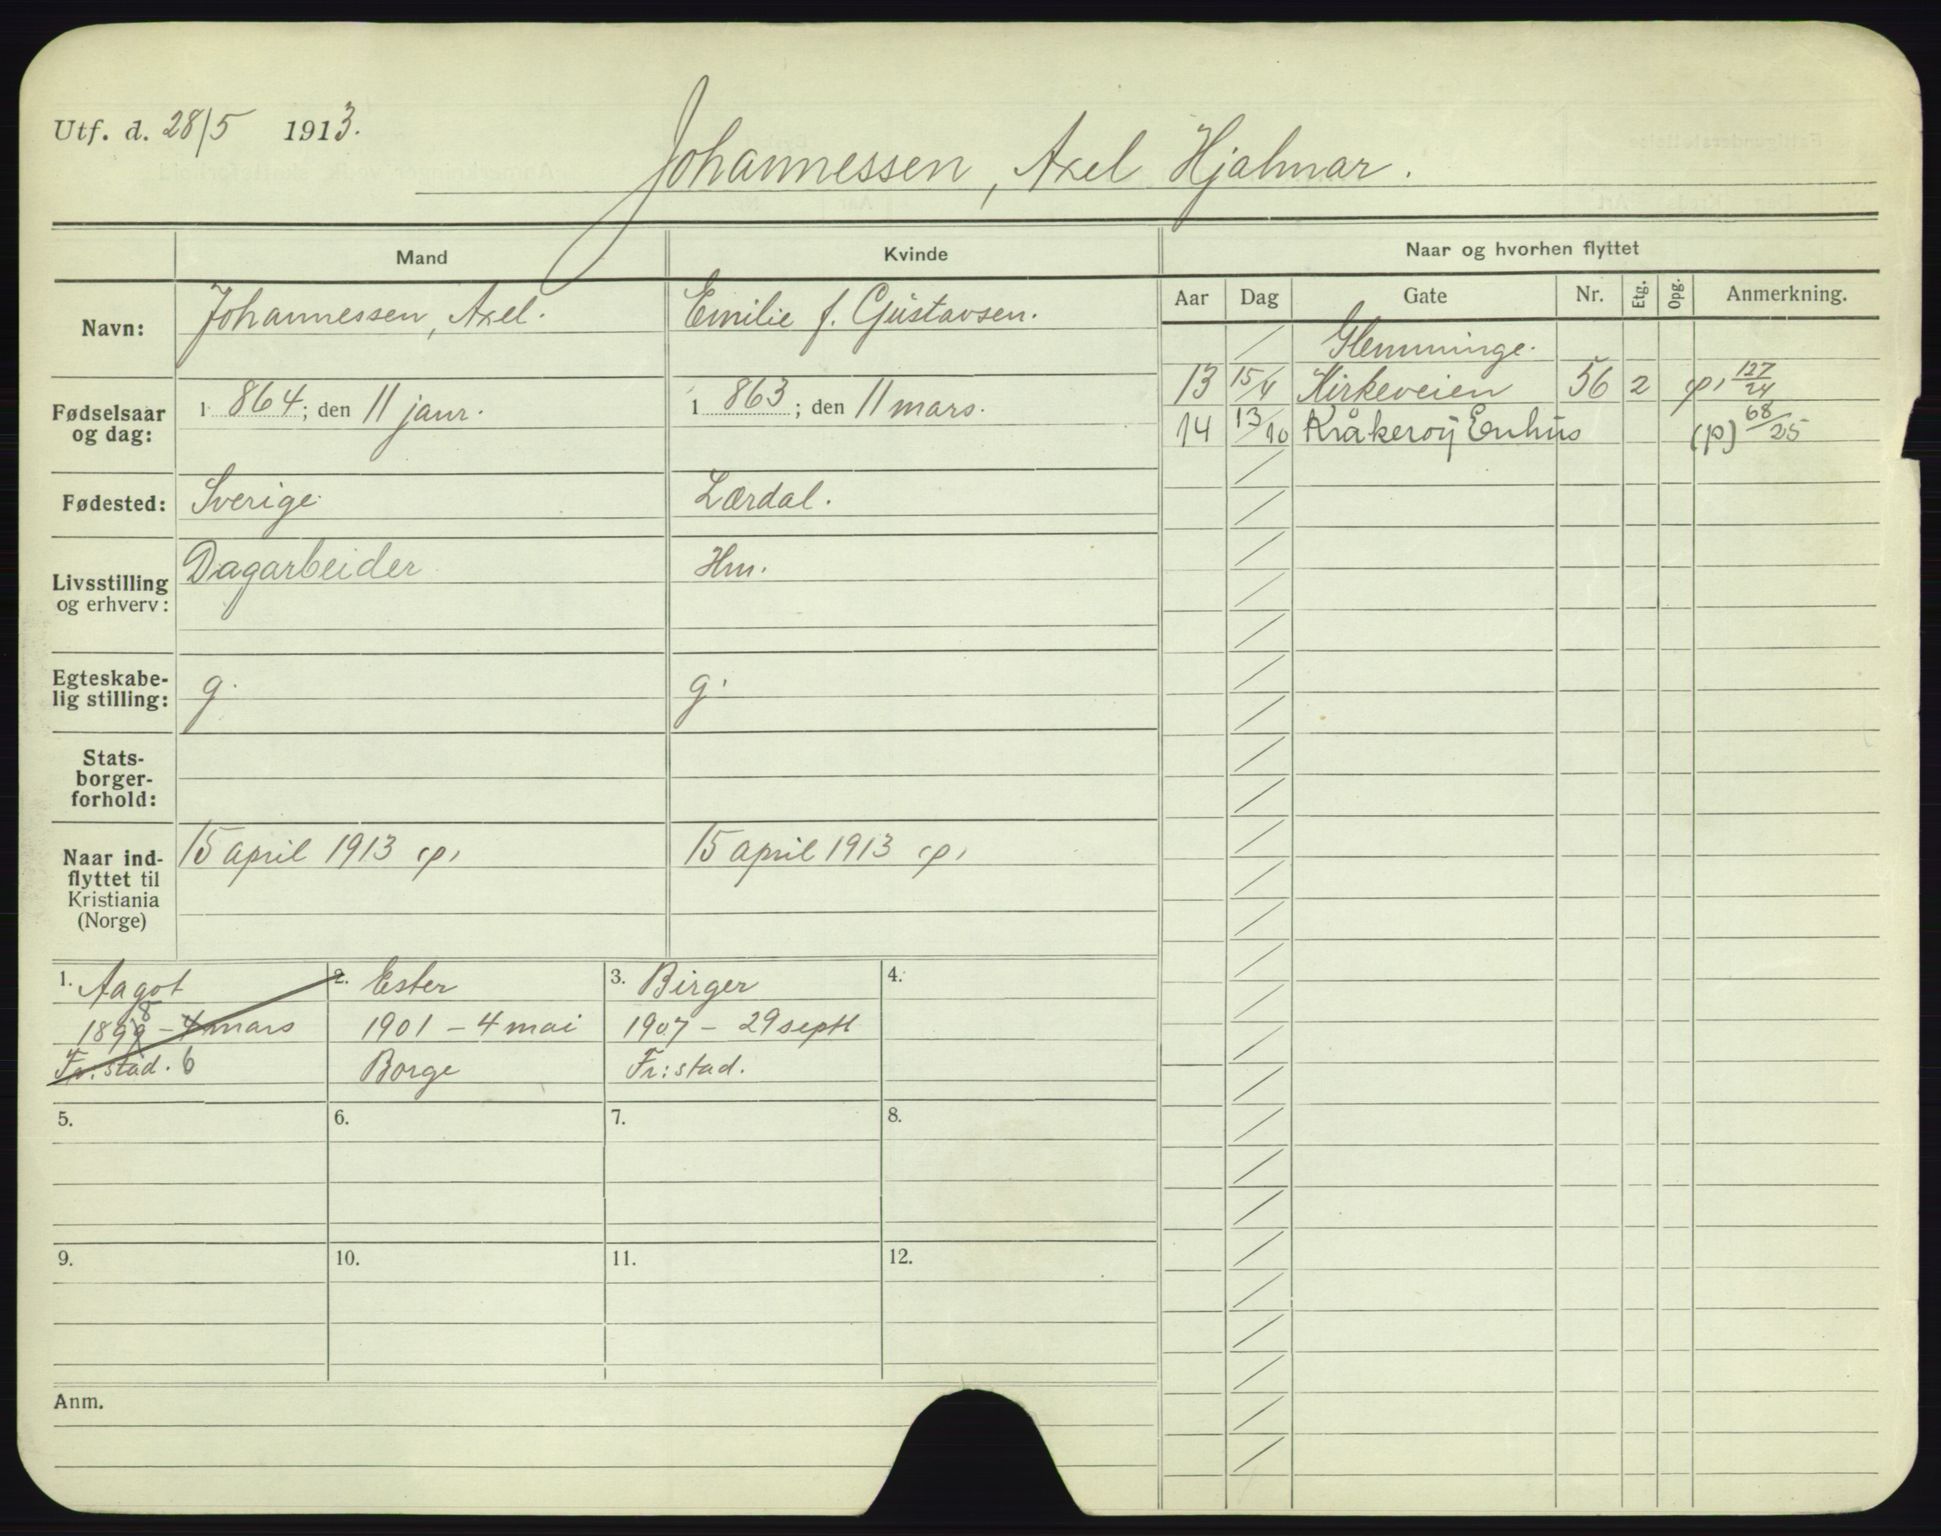 Utf. d. 28/5 1913.
Johannessen, Axel Hjalmar.
Mand
Kvinde
Navn:
Johannessen, Axel.
Emilie f. Gustavsen.
Fødselsaar og dag:
1864; den 11 janr.
1863; den 11 mars.
Fødested:
Sverige
Lærdal.
Livsstilling og erhverv:
Dagarbeider
Hm.
Egteskabelig stilling:
g.
g.
Statsborgerforhold:
Naar indflyttet til Kristiania (Norge)
15 april 1913 (p)
15 april 1913 (p)
1. Aagot
1898 - 4 mars
Fr. stad. 6
2. Ester
1901 - 4 mai
Borge
3. Birger
1907 - 29 septl
Fr: stad.
4.
5.
6.
7.
8.
9.
10.
11.
12.
Anm.
Naar og hvorhen flyttet
Aar Dag Gate Nr. Etg. Opg. Anmerkning.
Glemminge.
13 15/4 Kirkeveien 56 2 (p) 127/24
14 13/10 Kråkerøy Enhus (p) 68/25